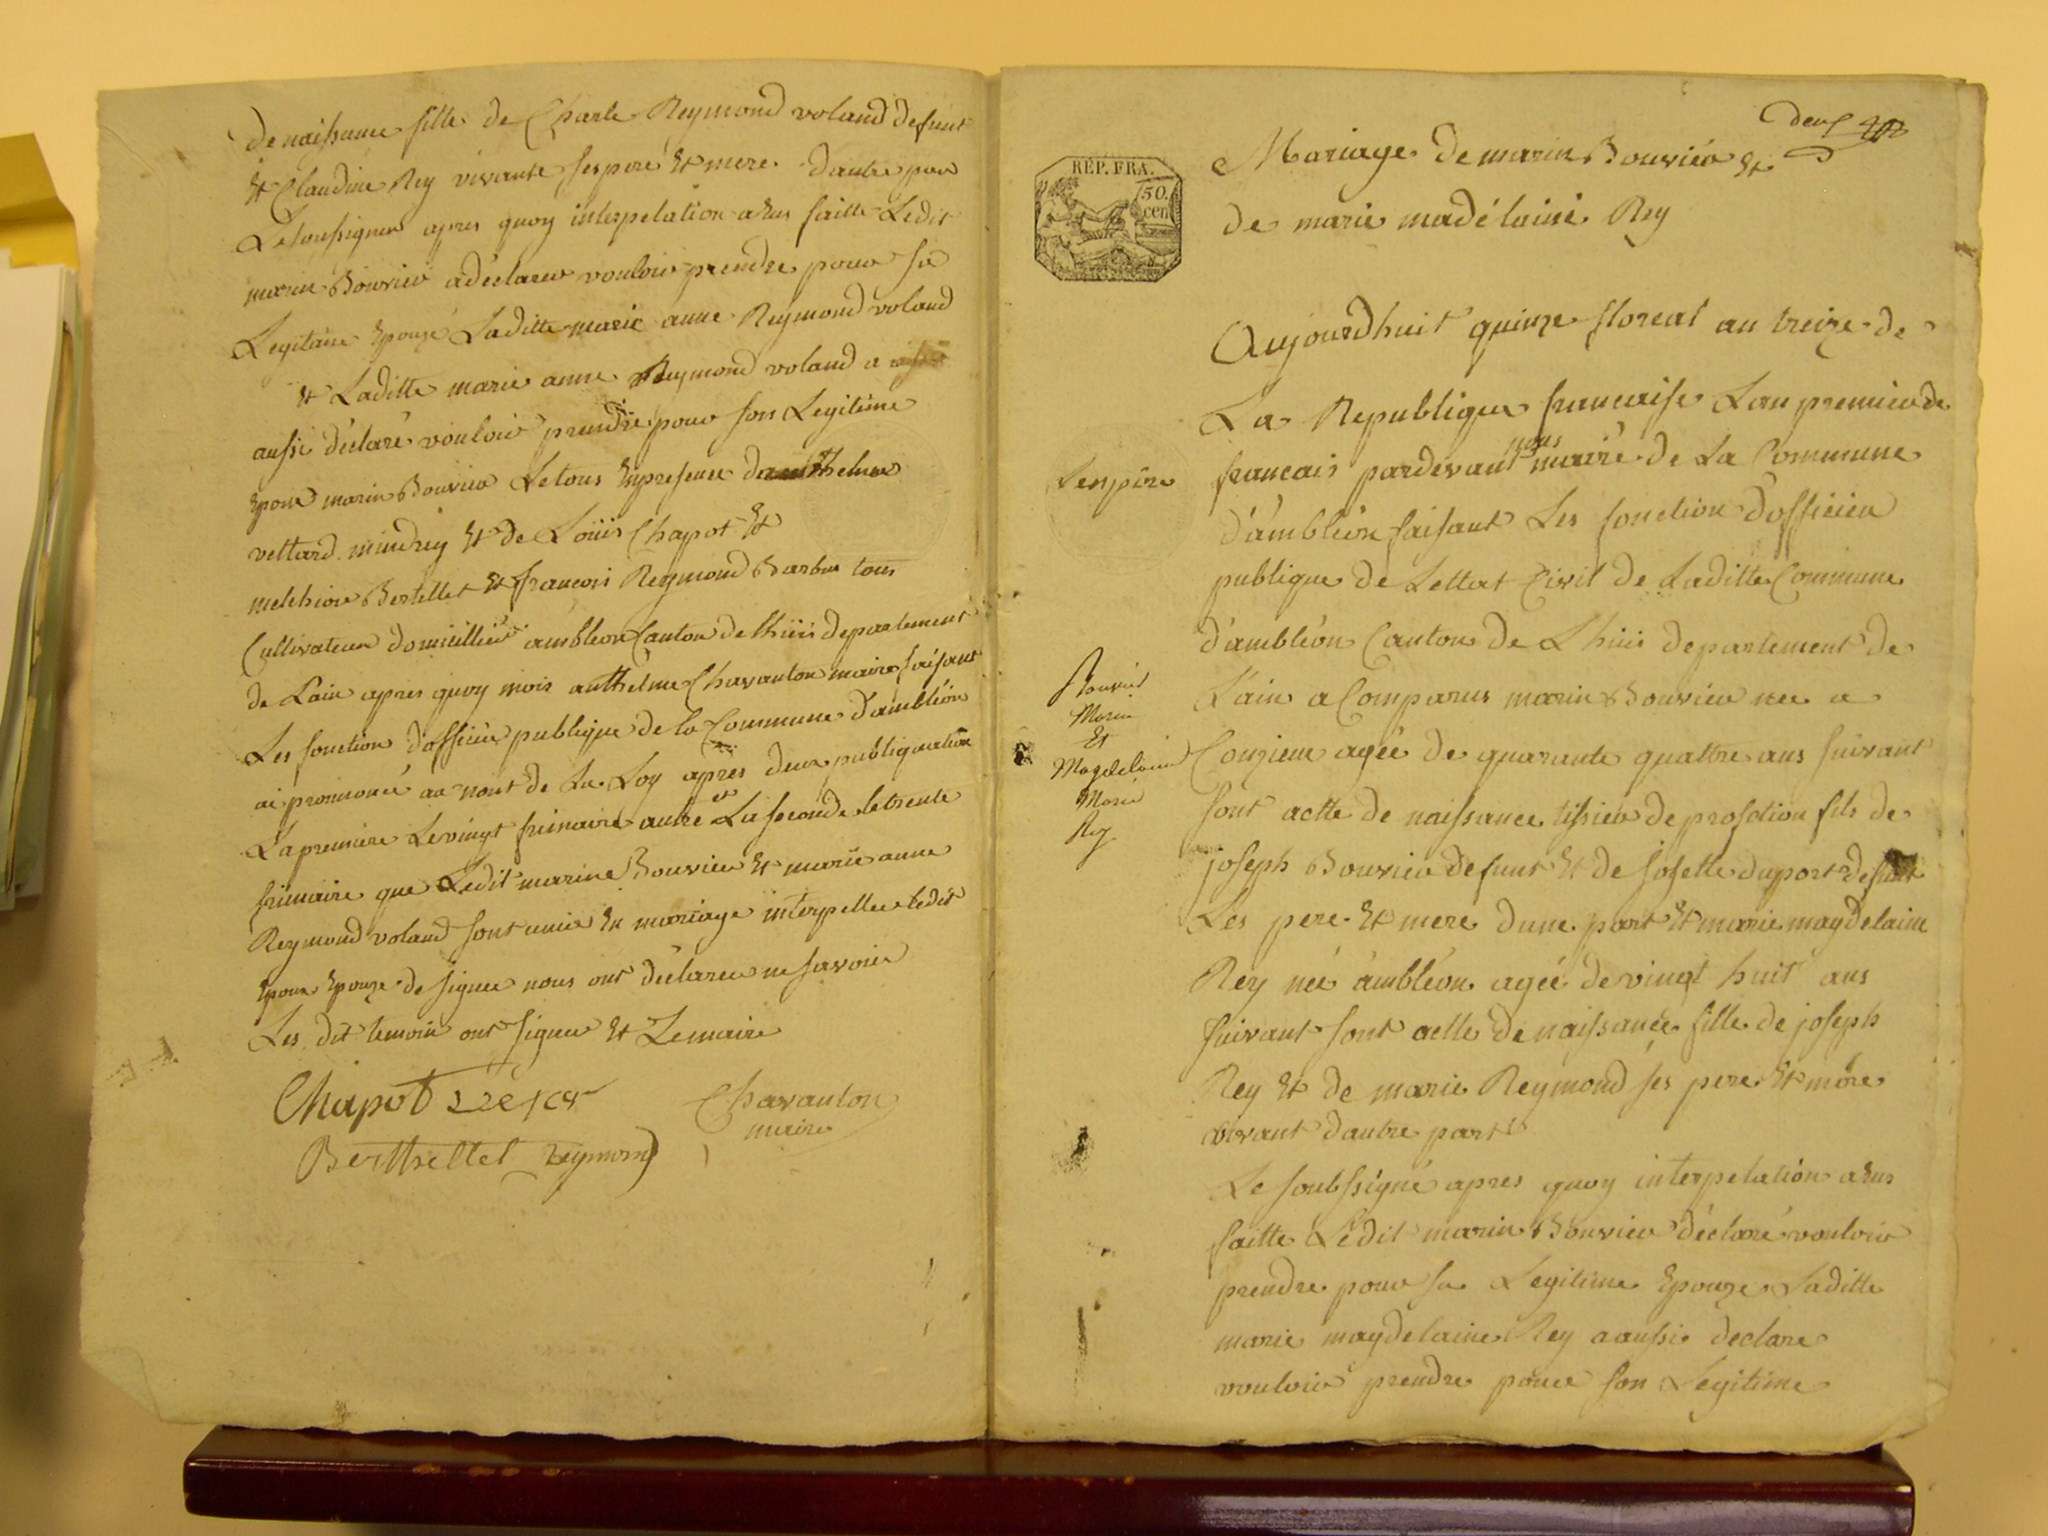 de naissance fille de Charle Reymond voland defunt
Et Claudine Rey vivante ses pere Et mere dautre part
Le soussigner apres quoy interpelation a Eus faitte Ledit
marin Bouvier a déclarer vouloir prendre pour sa
Legitime Epouze Laditte marie anne Reymond voland
Et Laditte marie anne Reymond voland a
aussi déclaré vouloir prendre pour son Legitime
Epoux marin Bouvier Letous En presence danthelme
vettard mindrey Et de Loüis Chapot Et
melchior Bertellet Et francois Reymond Barbue tous
Cultivateur domicillié ambleon Canton de Lhüis departement
de Lain apres quoy mois anthelme Chavanton maire faisant
Les fonction dofficier publique de la Commune d'ambléon
ai prononcé au nont de La Loy apres deux publiquation
La premiere Le vingt frimaire et autre La seconde le trente
frimaire que Ledit marin Bouvier Et marie anne
Reymond voland sont unie En mariage interpellee ledit
Epoux Epouze de signer nous ont déclaree ne savoir
Les dit temoin ont signer Et Lemaire
Chapot
Chavanton
maire
Berthellet Reymond
deux
RÉP. FRA.
50.
cen
Mariage de marin Bouvier Et
de marie madélaine Rey
Aujourdhuit quinze floreal an treize de
La Republique francaise Lan premier de
Lempire
francais pardevant nous maire de La Commune
d'ambléon faisant Les fonction dofficier
publique de Lettat Civil de Laditte Commune
d'ambléon Canton de Lhüis departement de
L'ain a Comparus marin Bouvier nee a
Bouvier
Marin
Et
Magdelaine
Marie
Rey
Conzieu agée de quarante quattre ans suivant
sont actte de naissance tissieu de profection fils de
joseph Bouvier defunt Et de josette duport defunt
Les pere Et mere dune part Et marie magdelaine
Rey neé ambléon agée de vingt huit ans
suivant sont actte de naissance fille de joseph
Rey Et de marie Reymond ses pere Et mere
vivant dautre part
Le soubssigné apres quoy interpelation a Eus
faitte Ledit marin Bouvier déclaré vouloir
prendre pour sa Legitime Epouze Laditte
marie magdelaine Rey a aussi declare
vouloir prendre pour son Legitime